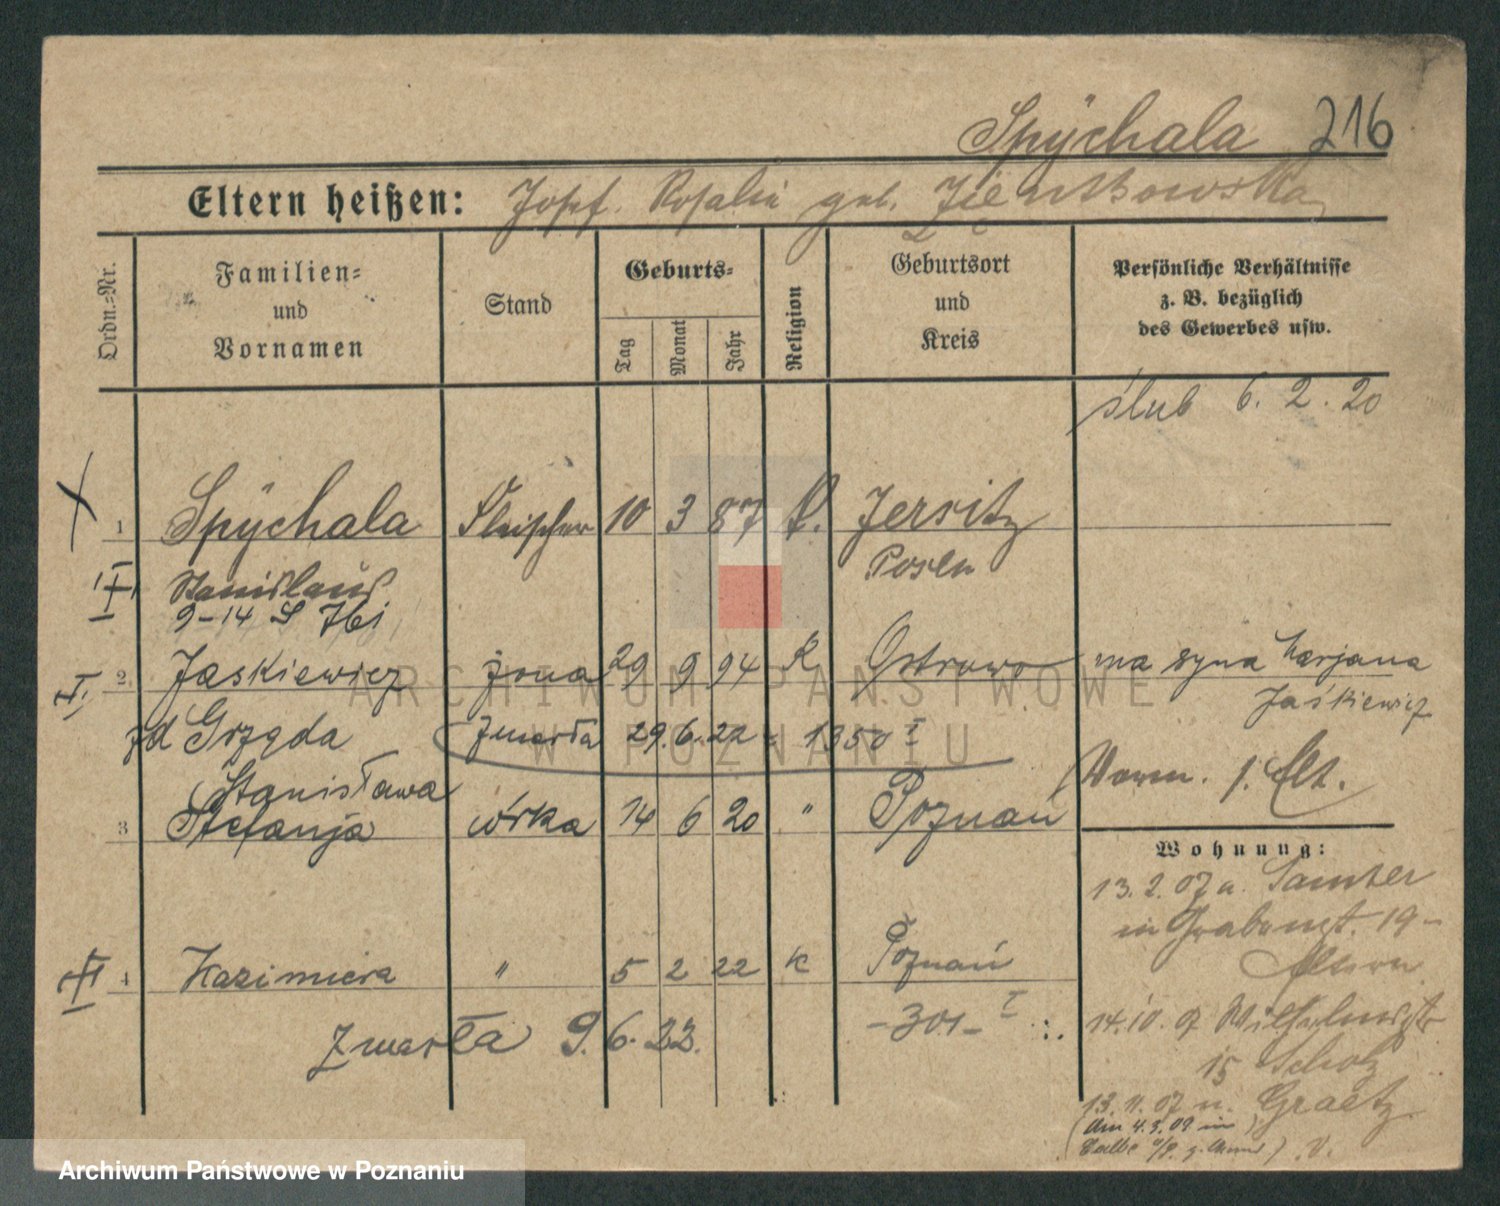 Spÿchala 216
Eltern heißen: Josef. Rosalie geb. Zientkowska
Ordn.=Nr.
Familien=
und
Vornamen
Stand
Geburts=
Tag
Monat
Jahr
Religion
Geburtsort
und
Kreis
Persönliche Verhältnisse
z. B. bezüglich
des Gewerbes usw.
ślub 6. 2. 20
1 Spÿchala Fleischer 10 3 87 k. Jersitz
Stanislaus Posen
9-14 S
2. Jaskiewicz żona 29 9 94 K Ostrowo ma syna Marjana
Jaśkiewicz
zd Grzęda zmarła 29.6.22 = 1350 I
Stanisława
Vorm. s. Elt.
3 Stefanja córka 14 6 20 " Poznań
Wohnung:
13.2.07 n. Samter
in Grabengt. 19-
Eltern
4 Kazimiera " 5 2 22 k Poznań
zmarła 9.6.22. -301- I
14.10.07 Wilhelmstr
15 Scholz
13.11.07 n. Graetz
(Am 4.3.09 in
Calbe a/S. g. )
ARCHIWUM PAŃSTWOWE
W POZNANIU
Archiwum Państwowe w Poznaniu